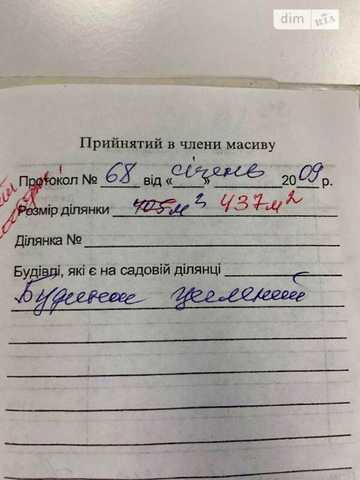 dim RIA
Прийнятий в члени масиву
Протокол № 68 від «січень» 2009 р.
Розмір ділянки 405м² 437м²
Ділянка №
Будівлі, які є на садовій ділянці
Будинок цегляний